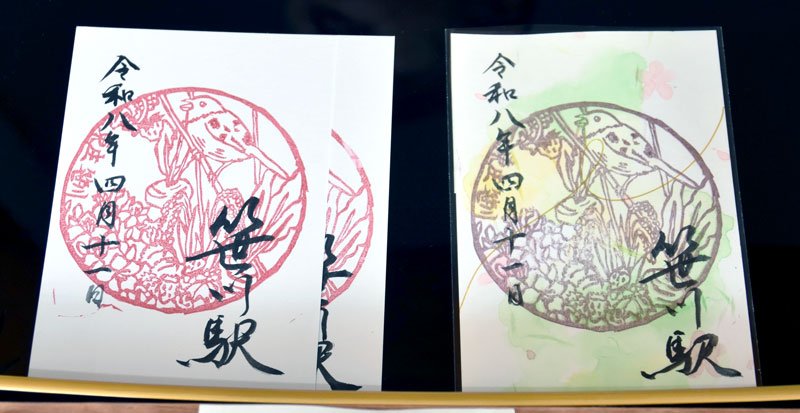 令和八年四月十一日
笹川駅
令和八年四月十一日
笹川駅